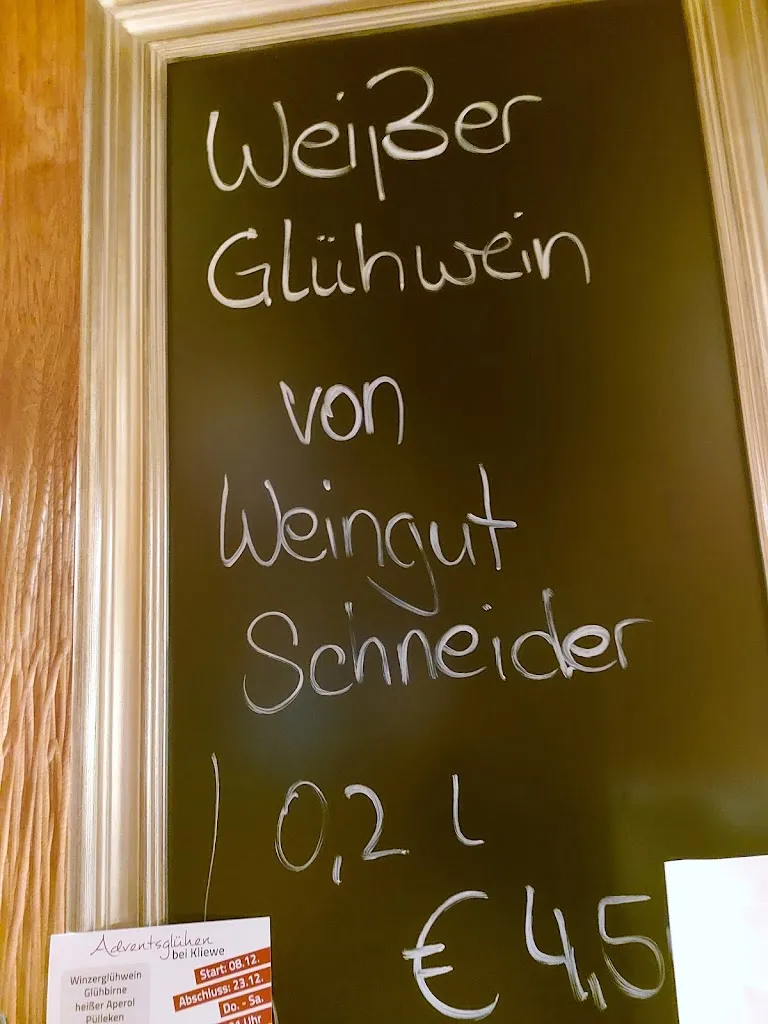 Weißer
Glühwein
von
Weingut
Schneider
0,2 l
€ 4,5
Adventsglühen
bei Kliewe
Winzerglühwein
Glühbirne
heißer Aperol
Pülleken
Start: 08.12.
Abschluss: 23.12.
Do. - Sa.
Uhr